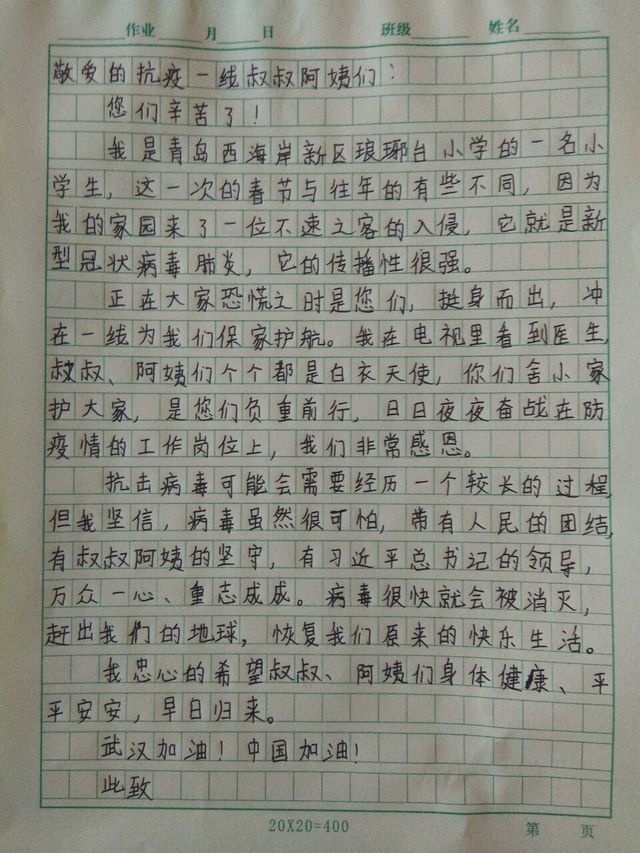 作业 月 日 班级 姓名
敬爱的抗疫一线叔叔阿姨们:
您们辛苦了!
我是青岛西海岸新区琅琊台小学的一名小
学生,这一次的春节与往年的有些不同,因为
我的家园来了一位不速之客的入侵,它就是新
型冠状病毒肺炎,它的传播性很强。
正在大家恐慌之时是您们,挺身而出,冲
在一线为我们保家护航。我在电视里看到医生
叔叔、阿姨们个个都是白衣天使,你们舍小家
护大家,是您们负重前行,日日夜夜奋战在防
疫情的工作岗位上,我们非常感恩。
抗击病毒可能会需要经历一个较长的过程,
但我坚信,病毒虽然很可怕,带有人民的团结,
有叔叔阿姨的坚守,有习近平总书记的领导,
万众一心、重志成成。病毒很快就会被消灭,
赶出我們的地球,恢复我们原来的快乐生活。
我忠心的希望叔叔、阿姨们身体健康、平
平安安,早日归来。
武汉加油!中国加油!
此致
20X20=400 第 页